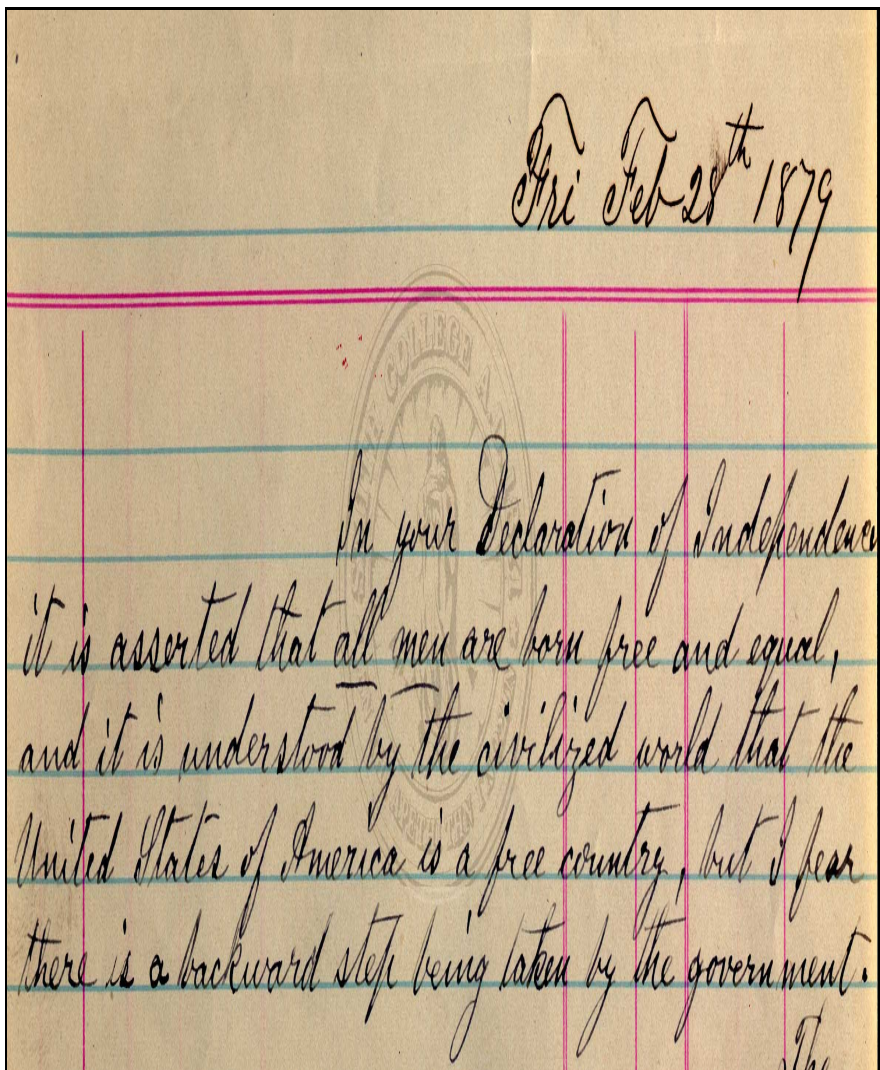 Fri Feb 28th 1879
In your Declaration of Independence
it is asserted that all men are born free and equal,
and it is understood by the civilized world that the
United States of America is a free country, but I fear
there is a backward step being taken by the government.
The